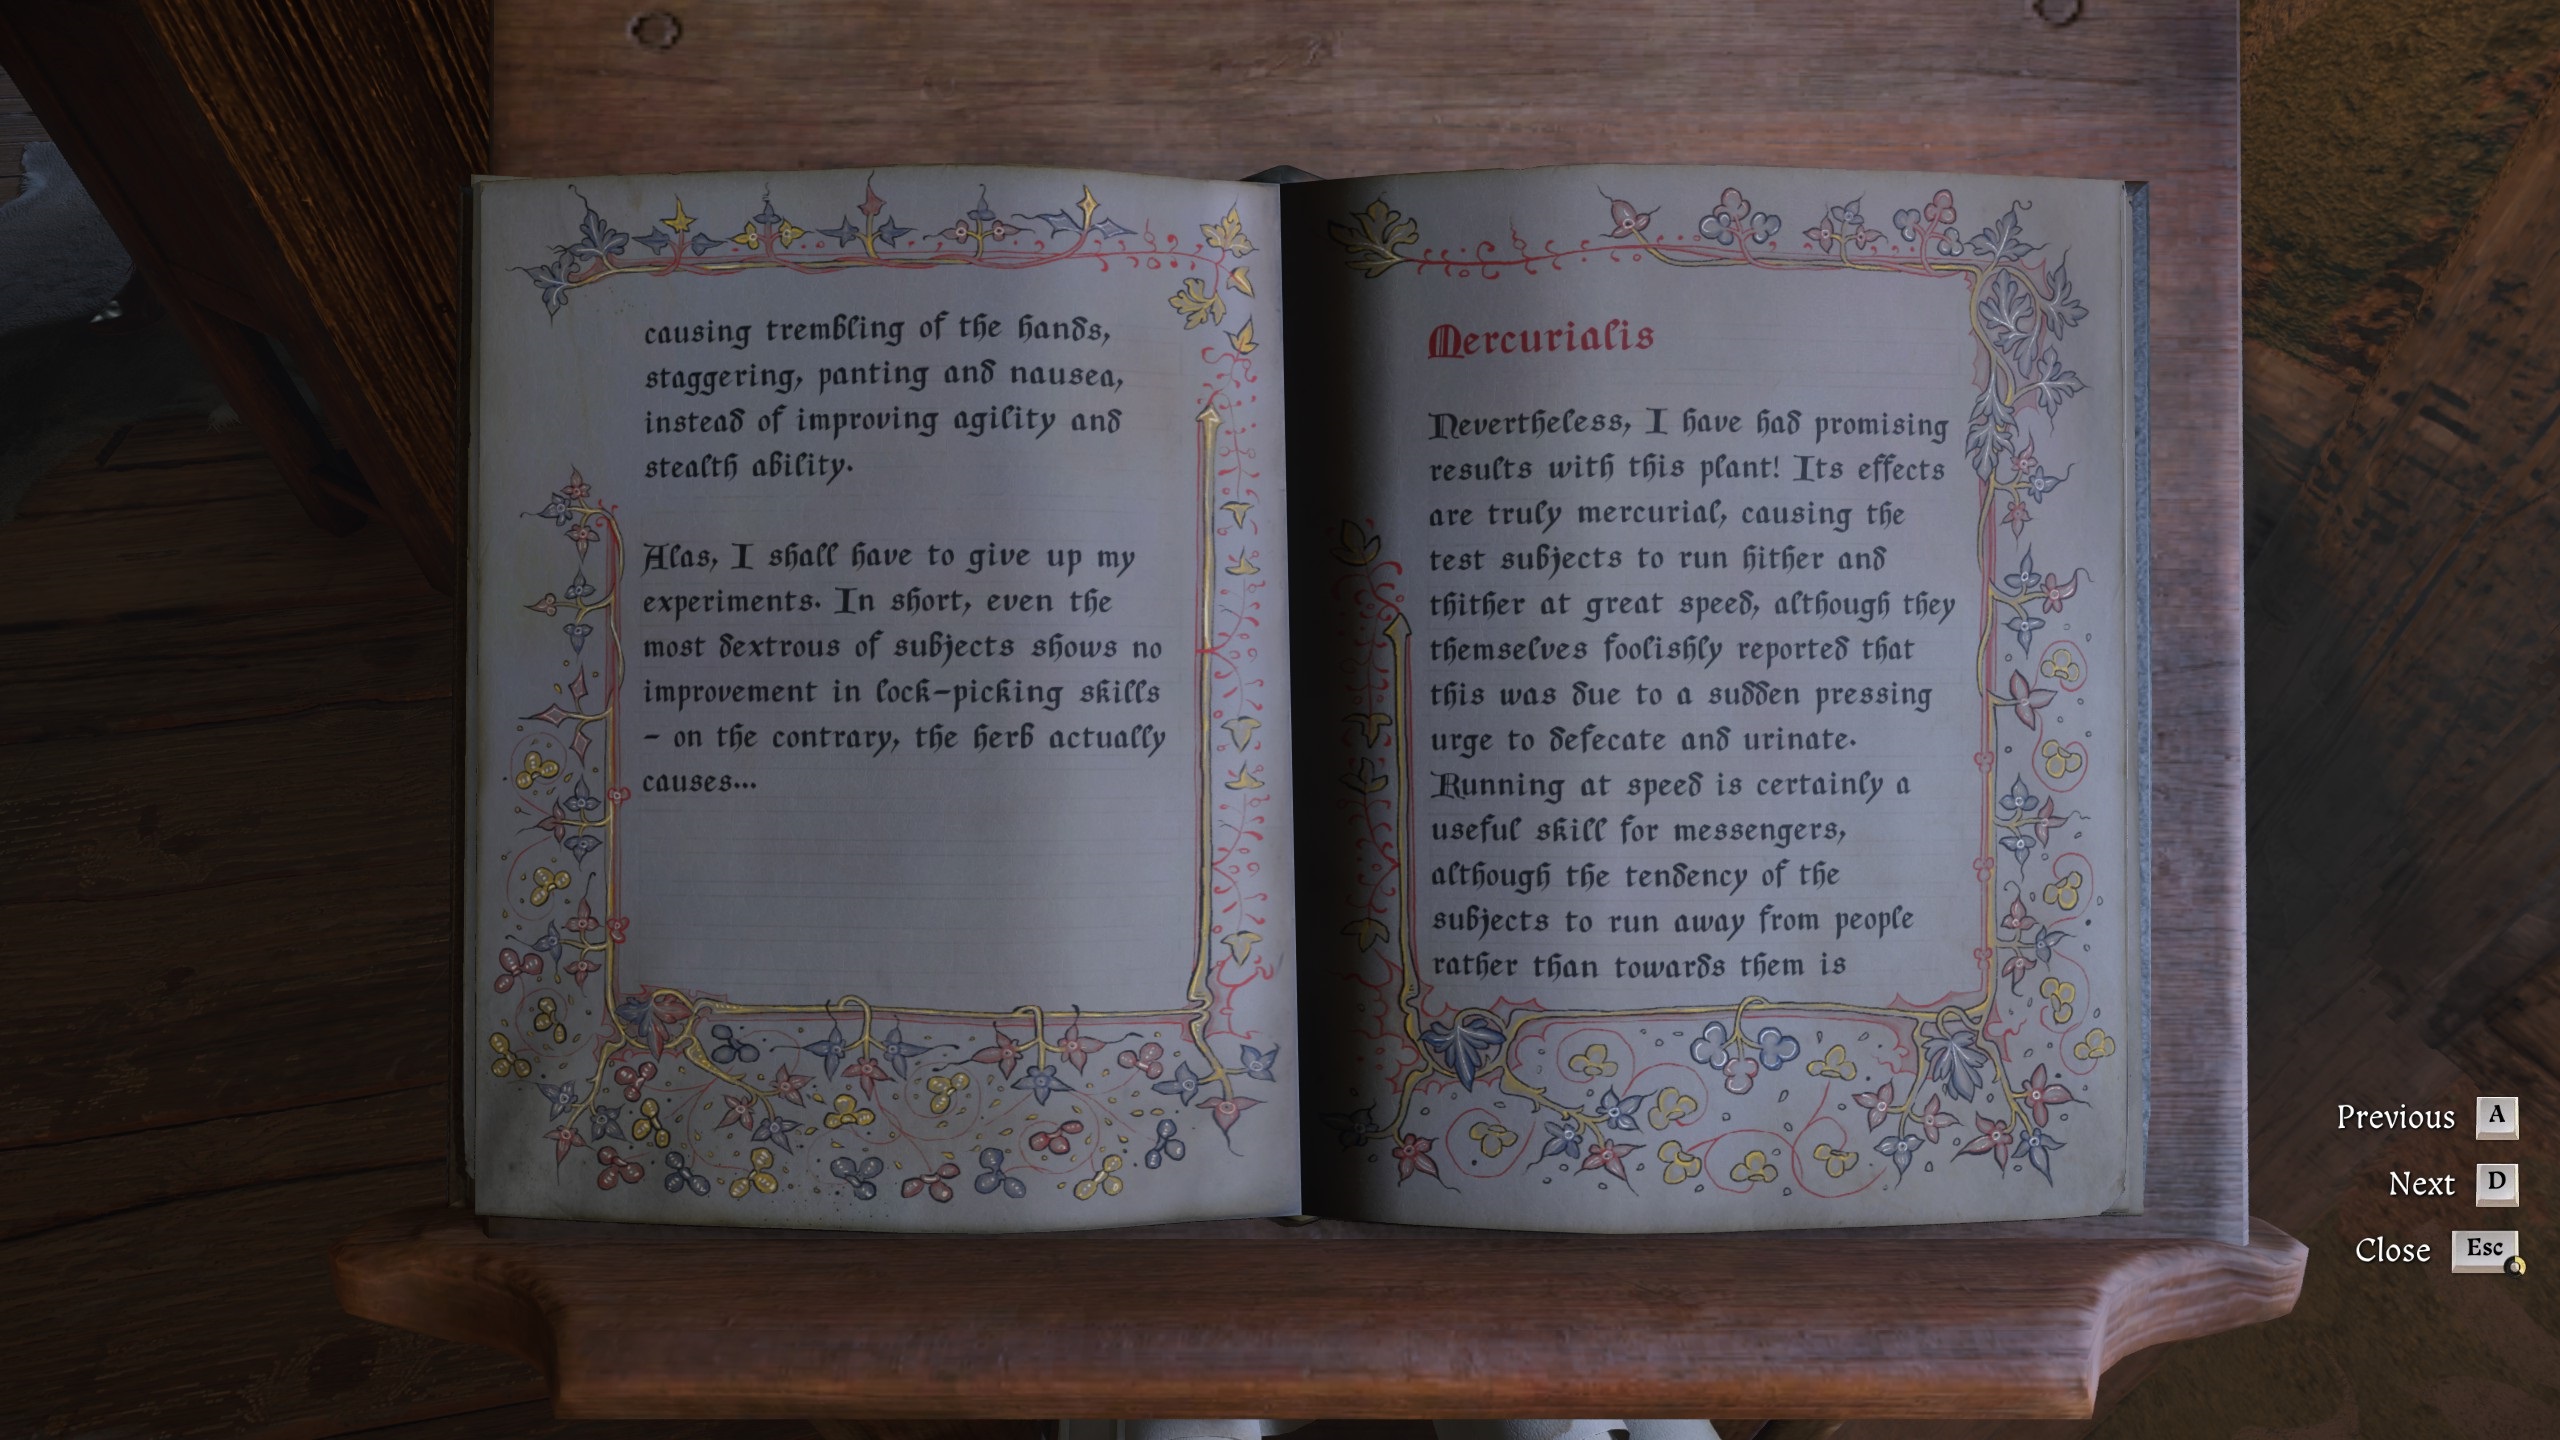 causing trembling of the hands,
staggering, panting and nausea,
instead of improving agility and
stealth ability.
Alas, I shall have to give up my
experiments. In short, even the
most dextrous of subjects shows no
improvement in lock-picking skills
- on the contrary, the herb actually
causes...
Mercurialis
Nevertheless, I have had promising
results with this plant! Its effects
are truly mercurial, causing the
test subjects to run hither and
thither at great speed, although they
themselves foolishly reported that
this was due to a sudden pressing
urge to defecate and urinate.
Running at speed is certainly a
useful skill for messengers,
although the tendency of the
subjects to run away from people
rather than towards them is
Previous A
Next D
Close Esc